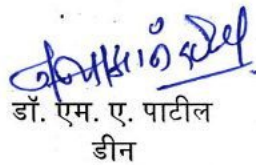 डॉ. एम. ए. पाटील
डीन